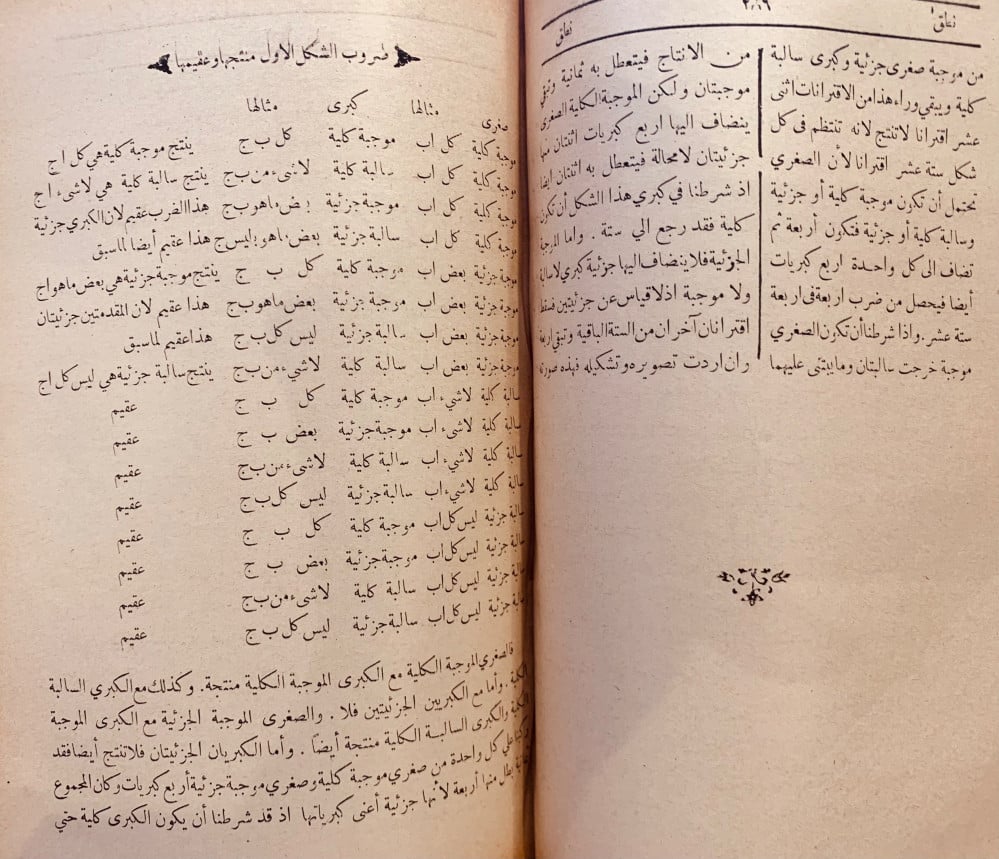 نطاق
٢٠١٦
نطاق
من موجبة صغرى جزئية وكبرى سالبة
كلية ويبقى وراء هذا من الاقترانات اثنى
عشر اقترانا لاتنتج لانه تنتظم فى كل
شكل ستة عشر اقترانا لأن الصغري
تحتمل أن تكون موجبة كلية أو جزئية
وسالبة كلية أو جزئية فتكون أربعة ثم
تضاف الى كل واحدة اربع كبريات
أيضا فيحصل من ضرب اربعة فى اربعة
ستة عشر. واذا شرطنا أن تكون الصغري
موجبة خرجت سالبتان وما يبتنى عليهما
من الانتاج فيتعطل به ثمانية وتبقى
موجبتان ولكن الموجبة الكلية الصغرى
ينضاف اليها اربع كبريات اثنتان منها
جزئيتان لامحالة فيتعطل به اثنتان ايضا
اذ شرطنا في كبري هذا الشكل أن تكون
كلية فقد رجع الي ستة . واما الموجبة
الجزئية فلا ينضاف اليها جزئية كبري لاسالبة
ولا موجبة اذ لاقياس عن جزئيتين فسقط
اقترانان آخران من الستة الباقية وتبقي اربعة
وان اردت تصويره وتشكيله فهذه صورته
ضروب الشكل الاول منتجها وعقيمها
صغرى مثالها كبرى مثالها
موجبة كلية كل اب موجبة كلية كل ب ج ينتج موجبة كلية هي كل اج
موجبة كلية كل اب سالبة كلية لاشىء من ب ج ينتج سالبة كلية هي لاشىء اج
موجبة كلية كل اب موجبة جزئية بعض ماهو ب ج هذا الضرب عقيم لان الكبري جزئية
موجبة كلية كل اب سالبة جزئية بعض ماهو ب ليس ج هذا عقيم أيضا لما سبق
موجبة جزئية بعض اب موجبة كلية كل ب ج ينتج موجبة جزئية هي بعض ماهو اج
موجبة جزئية بعض اب موجبة جزئية بعض ماهو ب ج هذا عقيم لان المقدمتين جزئيتان
موجبة جزئية بعض اب سالبة جزئية ليس كل ب ج هذا عقيم لما سبق
موجبة جزئية بعض اب سالبة كلية لاشىء من ب ج ينتج سالبة جزئية هي ليس كل اج
سالبة كلية لاشىء اب موجبة كلية كل ب ج عقيم
سالبة كلية لاشىء اب موجبة جزئية بعض ب ج عقيم
سالبة كلية لاشىء اب سالبة كلية لاشىء من ب ج عقيم
سالبة كلية لاشىء اب سالبة جزئية ليس كل ب ج عقيم
سالبة جزئية ليس كل اب موجبة كلية كل ب ج عقيم
سالبة جزئية ليس كل اب موجبة جزئية بعض ب ج عقيم
سالبة جزئية ليس كل اب سالبة كلية لاشىء من ب ج عقيم
سالبة جزئية ليس كل اب سالبة جزئية ليس كل ب ج عقيم
فالصغري الموجبة الكلية مع الكبرى الموجبة الكلية منتجة. وكذلك مع الكبري السالبة
الكلية. وأما مع الكبريين الجزئيتين فلا . والصغرى الموجبة الجزئية مع الكبرى الموجبة
الكلية والكبرى السالبة الكلية منتجة أيضاً . وأما الكبريان الجزئيتان فلا تنتج أيضا فقد
ركبنا علي كل واحدة من صغري موجبة كلية وصغري موجبة جزئية أربع كبريات وكان المجموع
ثمانية بطل منها أربعة لأنها جزئية أعنى كبرياتها اذ قد شرطنا أن يكون الكبرى كلية حتي